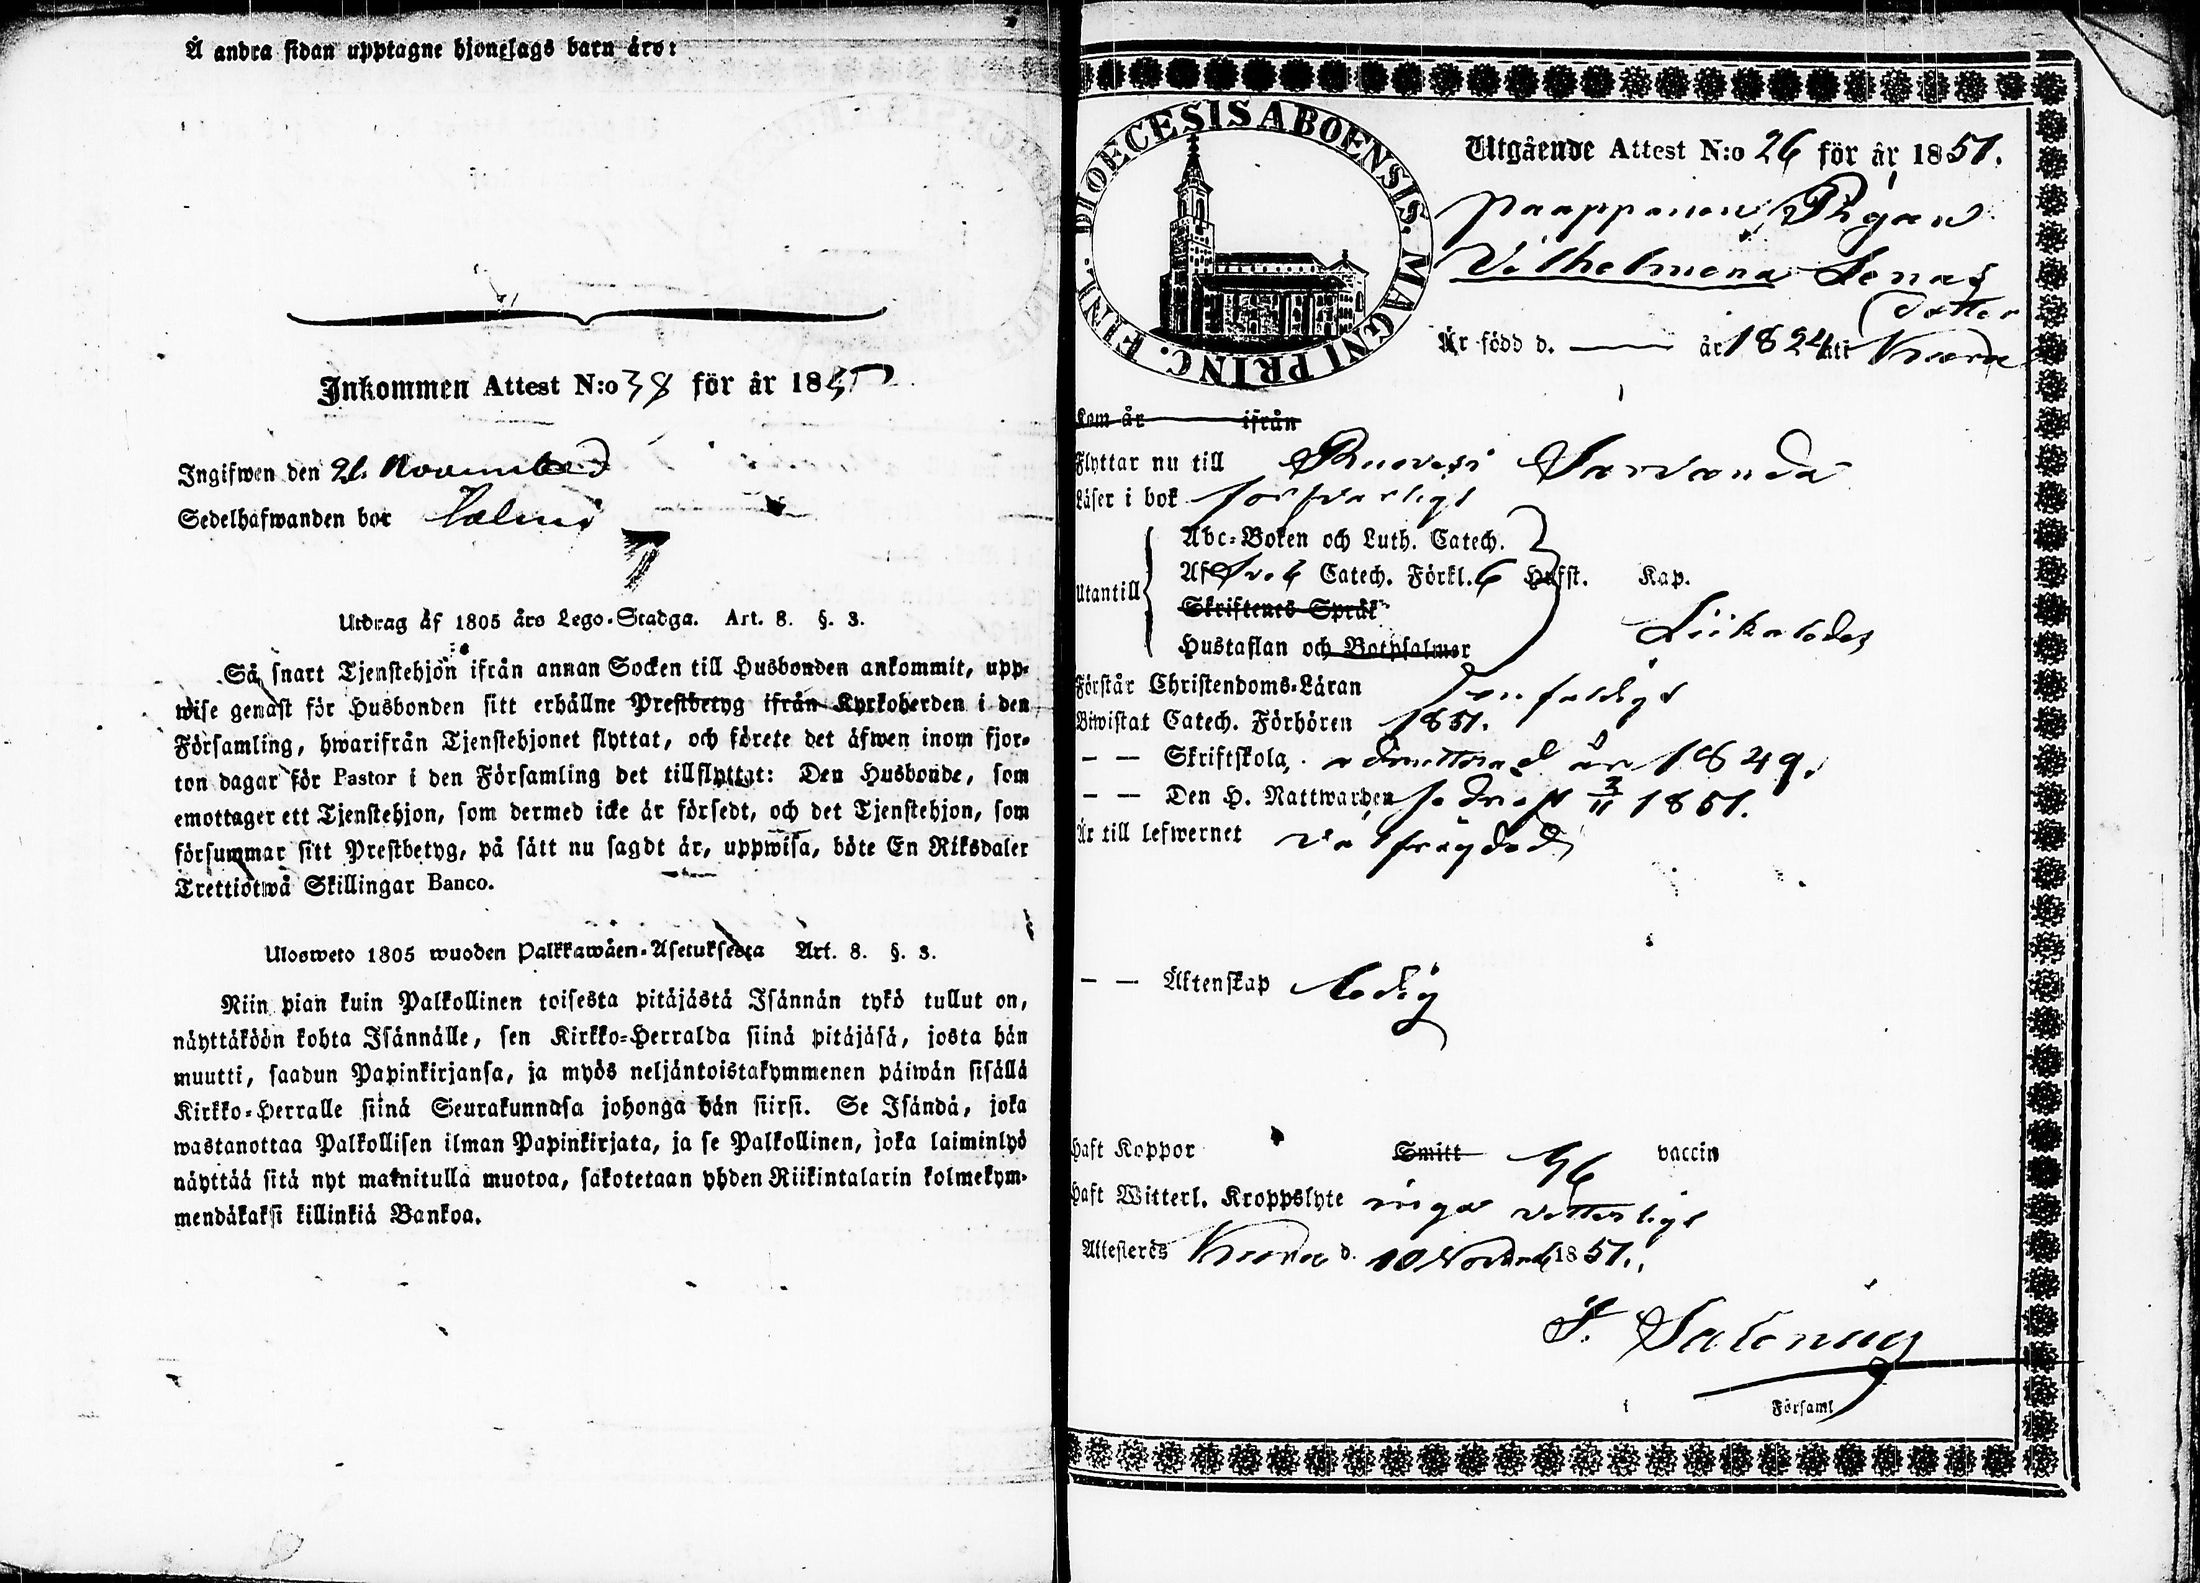 Å andra sidan upptagne hjonelags barn äro:
Inkommen Attest N:o 38 för år 185
Ingifwen den 21. November
Sedelhafwanden bor
Utdrag af 1805 års Lego-Stadga. Art. 8. §. 3.
Så snart Tjenstehjon ifrån annan Socken till Husbonden ankommit, upp-
wise genast för Husbonden sitt erhållne Prestbetyg ifrån Kyrkoherden i den
Församling, hwarifrån Tjenstehjonet flyttat, och förete det äfwen inom fjor-
ton dagar för Pastor i den Församling det tillflyttat: Den Husbonde, som
emottager ett Tjenstehjon, som dermed icke är försedt, och det Tjenstehjon, som
försummar sitt Prestbetyg, på sätt nu sagdt är, uppwisa, böte En Riksdaler
Trettiotwå Skillingar Banco.
Ulosweto 1805 wuoden Palkkawäen-Asetuksesta Art. 8. §. 3.
Niin pian kuin Palkollinen toisesta pitäjästä Isännän tykö tullut on,
näyttäköön kohta Isännälle, sen Kirkko-Herralda siinä pitäjäsä, josta hän
muutti, saadun Papinkirjansa, ja myös neljäntoistakymmenen päiwän sisällä
Kirkko-Herralle siinä Seurakunnasa johonga hän siirsi. Se Isändä, joka
wastanottaa Palkollisen ilman Papinkirjata, ja se Palkollinen, joka laiminlyö
näyttää sitä nyt mainitulla muotoa, sakotetaan yhden Riikintalarin kolmekym-
mendäkaksi killinkiä Bankoa.
DIOECESIS ABOENSIS. MAGNI PRINC. FINL.
Utgående Attest N:o 26 för år 1851.
Paappanen Pigan
Vilhelmena Jonas
dotter
Är född d. — år 1824 uti Kuru
Kom år ifrån
Flyttar nu till Ruovesi
Läser i bok försvarligt
Utantill
Abc-Boken och Luth. Catech.
Af Sveb Catech. Förkl. 6 Hufst. Kap.
Skriftenes Språk
Hustaflan och Botpsalmer
Likaledes
Förstår Christendoms-Läran enfaldigt
Biwistat Catech. Förhören 1851.
— — Skriftskola, admitterad år 1849.
— — Den H. Nattwarden sednast 2/11 1851.
Är till lefwernet välfrägdad
— — Äktenskap ledig
Haft Koppor Smitt vaccin
Haft Witterl. Kroppslyte inga vetterligt
Attesteras Kuru d. 10 Novemb 1851.
Salenius
i Församl